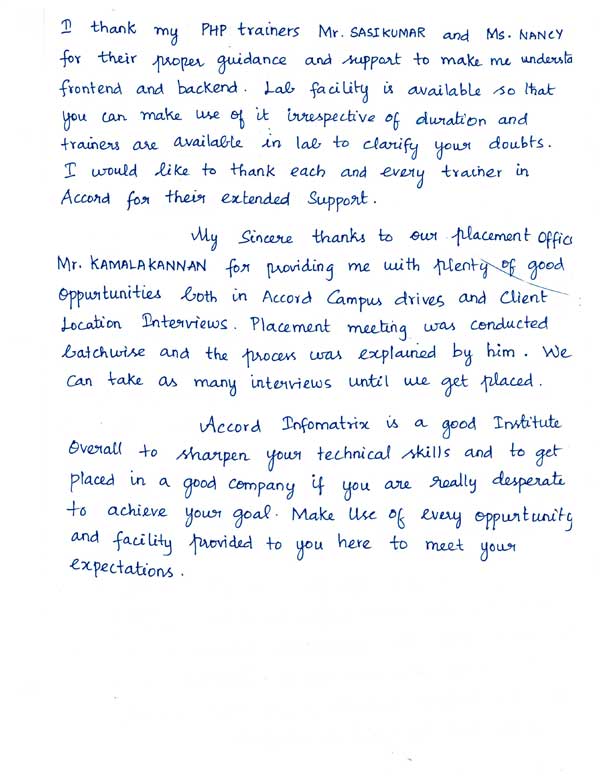 I thank my PHP trainers Mr. SASIKUMAR and Ms. NANCY
for their proper guidance and support to make me understa
frontend and backend. Lab facility is available so that
you can make use of it irrespective of duration and
trainers are available in lab to clarify your doubts.
I would like to thank each and every trainer in
Accord for their extended Support.
My Sincere thanks to our placement Office
Mr. KAMALAKANNAN for providing me with plenty of good
Oppurtunities both in Accord Campus drives and Client
Location Interviews. Placement meeting was conducted
batchwise and the process was explained by him. We
can take as many interviews until we get placed.
Accord Infomatrix is a good Institute
Overall to sharpen your technical skills and to get
placed in a good company if you are really desperate
to achieve your goal. Make Use of every oppurtunity
and facility provided to you here to meet your
expectations.